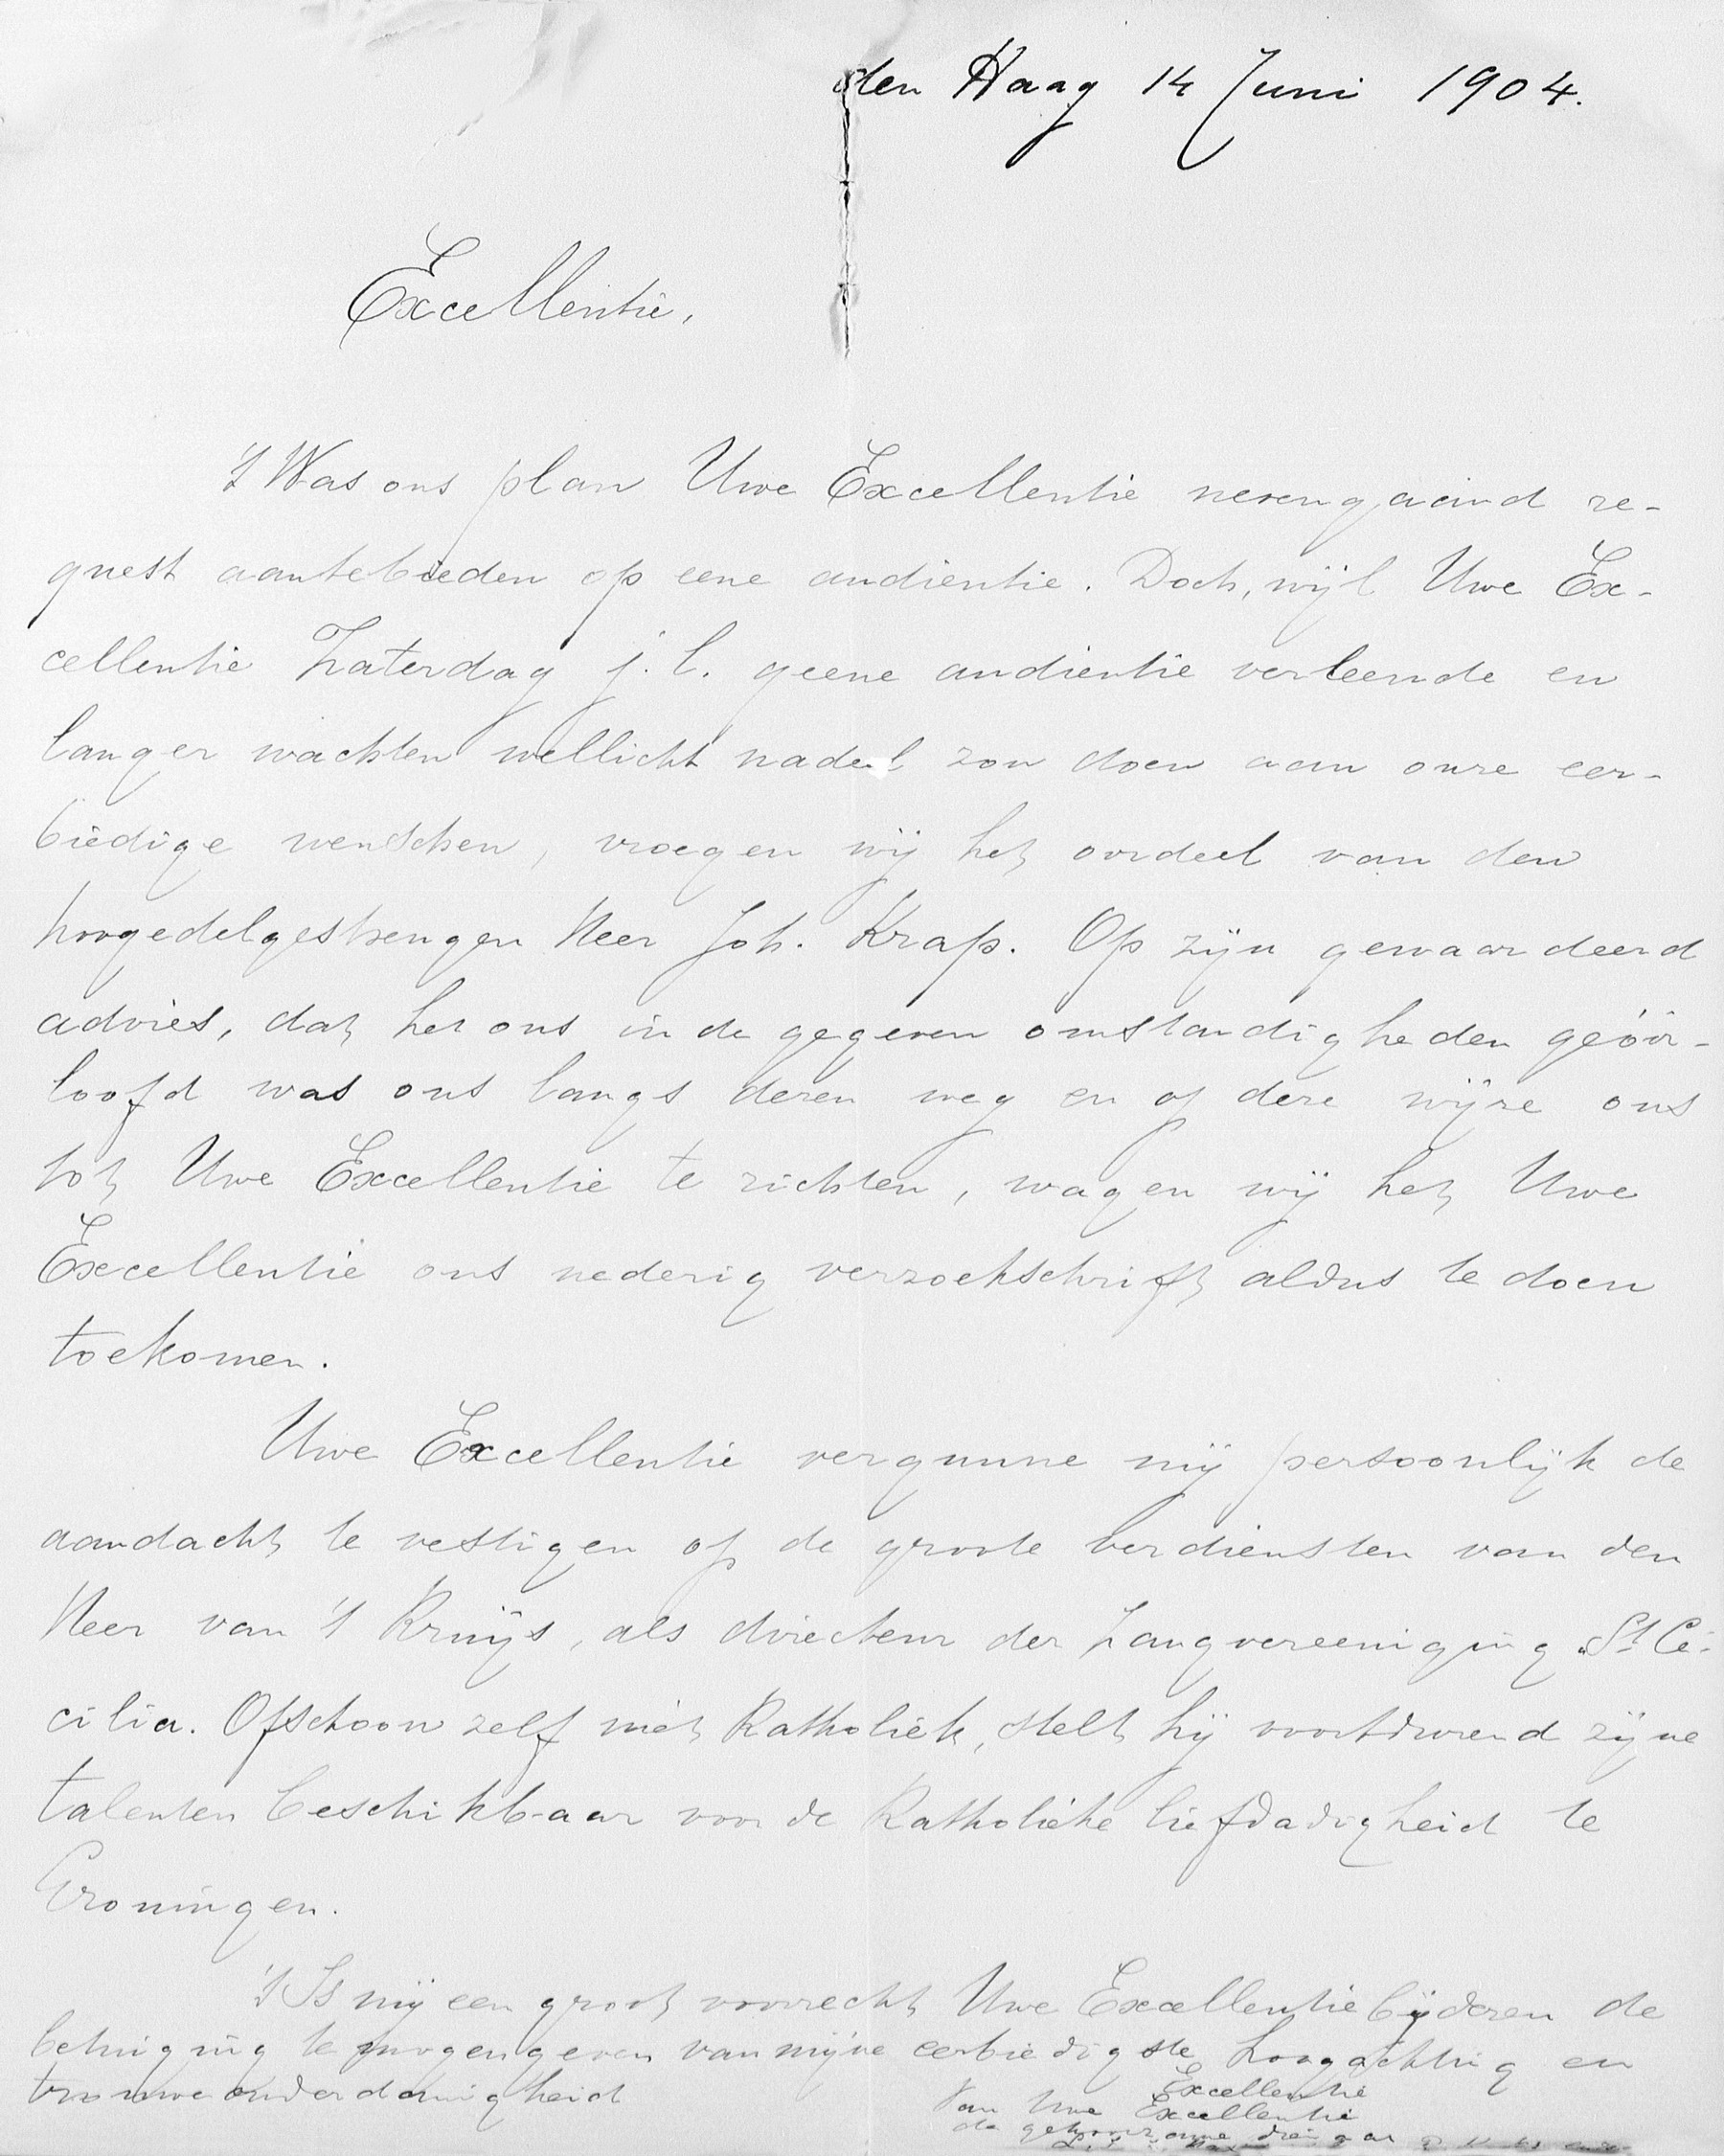 den Haag 14 Juni 1904.
Excellentie,
't Was ons plan Uwe Excellentie nevengaand re-
quest aantebieden op eene audientie. Doch, wijl Uwe Ex-
cellentie Zaterdag j.l. geene audientie verleende en
langer wachten wellicht nadeel zou doen aan onze eer-
biedige wenschen, vroegen wij het oordeel van den
hoogedelgestrengen Heer Joh. Krap. Op zijn gewaardeerd
advies, dat het ons in de gegeven omstandigheden geoor-
loofd was ons langs dezen weg en op deze wijze ons
tot Uwe Excellentie te richten, wagen wij het Uwe
Excellentie ons nederig verzoekschrift aldus te doen
toekomen.
Uwe Excellentie vergunne mij persoonlijk de
aandacht te vestigen op de groote verdiensten van den
Heer van 't Kruijs, als directeur der Zangvereeniging „St Ce-
cilia. Ofschoon zelf niet Katholiek, stelt hij voortdurend zijne
talenten beschikbaar voor de Katholieke liefdadigheid te
Groningen.
't Is mij een groot voorrecht Uwe Excellentie bij dezen de
betuiging te mogen geven van mijne eerbiedigste hoogachting en
trouwe onderdanigheid
Excellentie
Van Uwe Excellentie
de gehoorzame dienaar